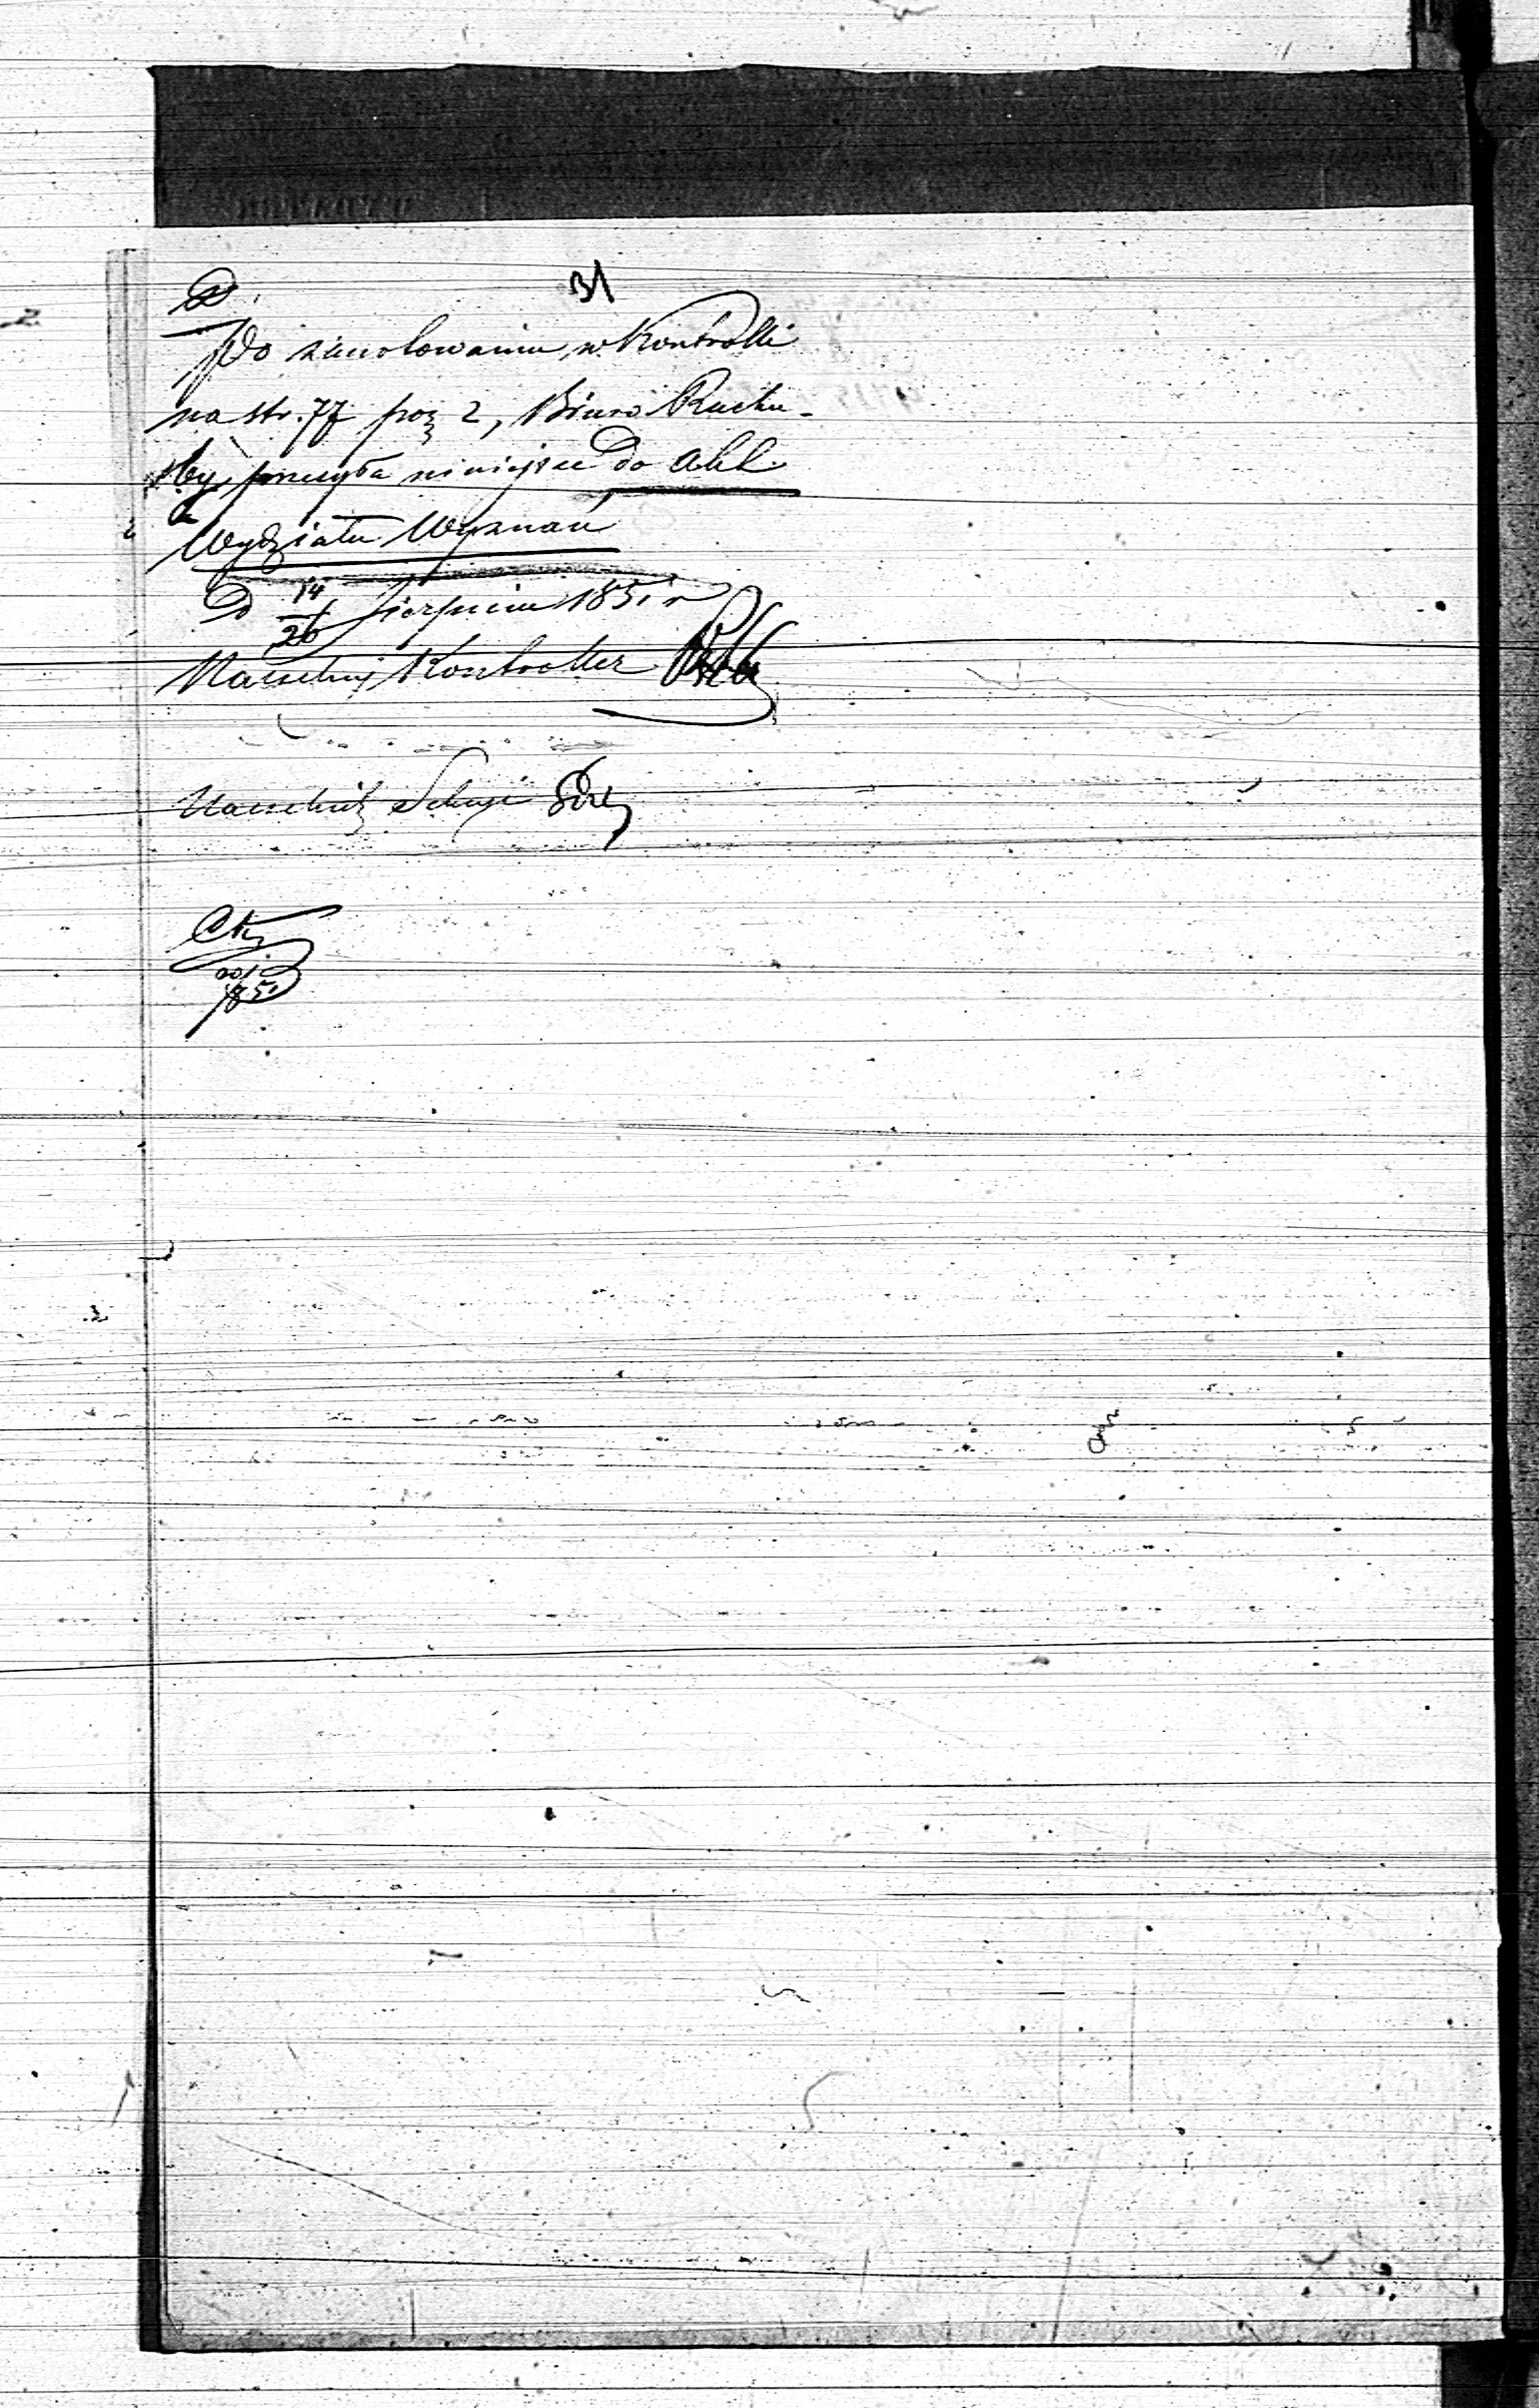 31
Po zanotowaniu w Kontrolli
na str. 77 poz 2, Biuro Rachu-
by, przesyła niniejsze do Akt
Wydziału Wyznań
D 14/26 Sierpnia 1851 r
Naczelny Kontroller
Naczelnik Sekcyi
1851